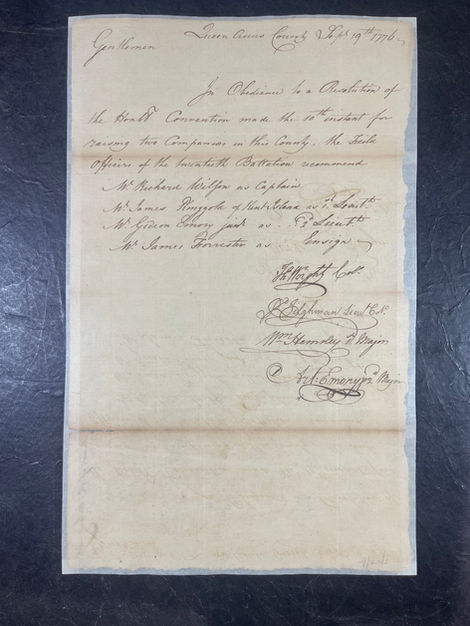 Queen Anns County Sept 19th 1776
Gentlemen
In Obedience to a Resolution of
the Honble Convention made the 10th instant for
raising two Companies in this County, the Field
Officers of the twentieth Battalion recommend
Mr Richard Wilson as Captain
Mr James Ringgold of Kent Island as 1st Lieutt
Mr Gideon Emory junr as 2d Lieutt
Mr James Forrester as Ensign
Ths Wright Col.
Tilghman Lieut Col.
Wm Hemsley 1st Major
Art: Emory 2d Major